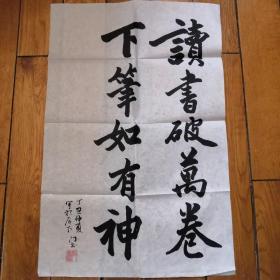 讀書破萬卷
下筆如有神
丁丑仲夏
寫於